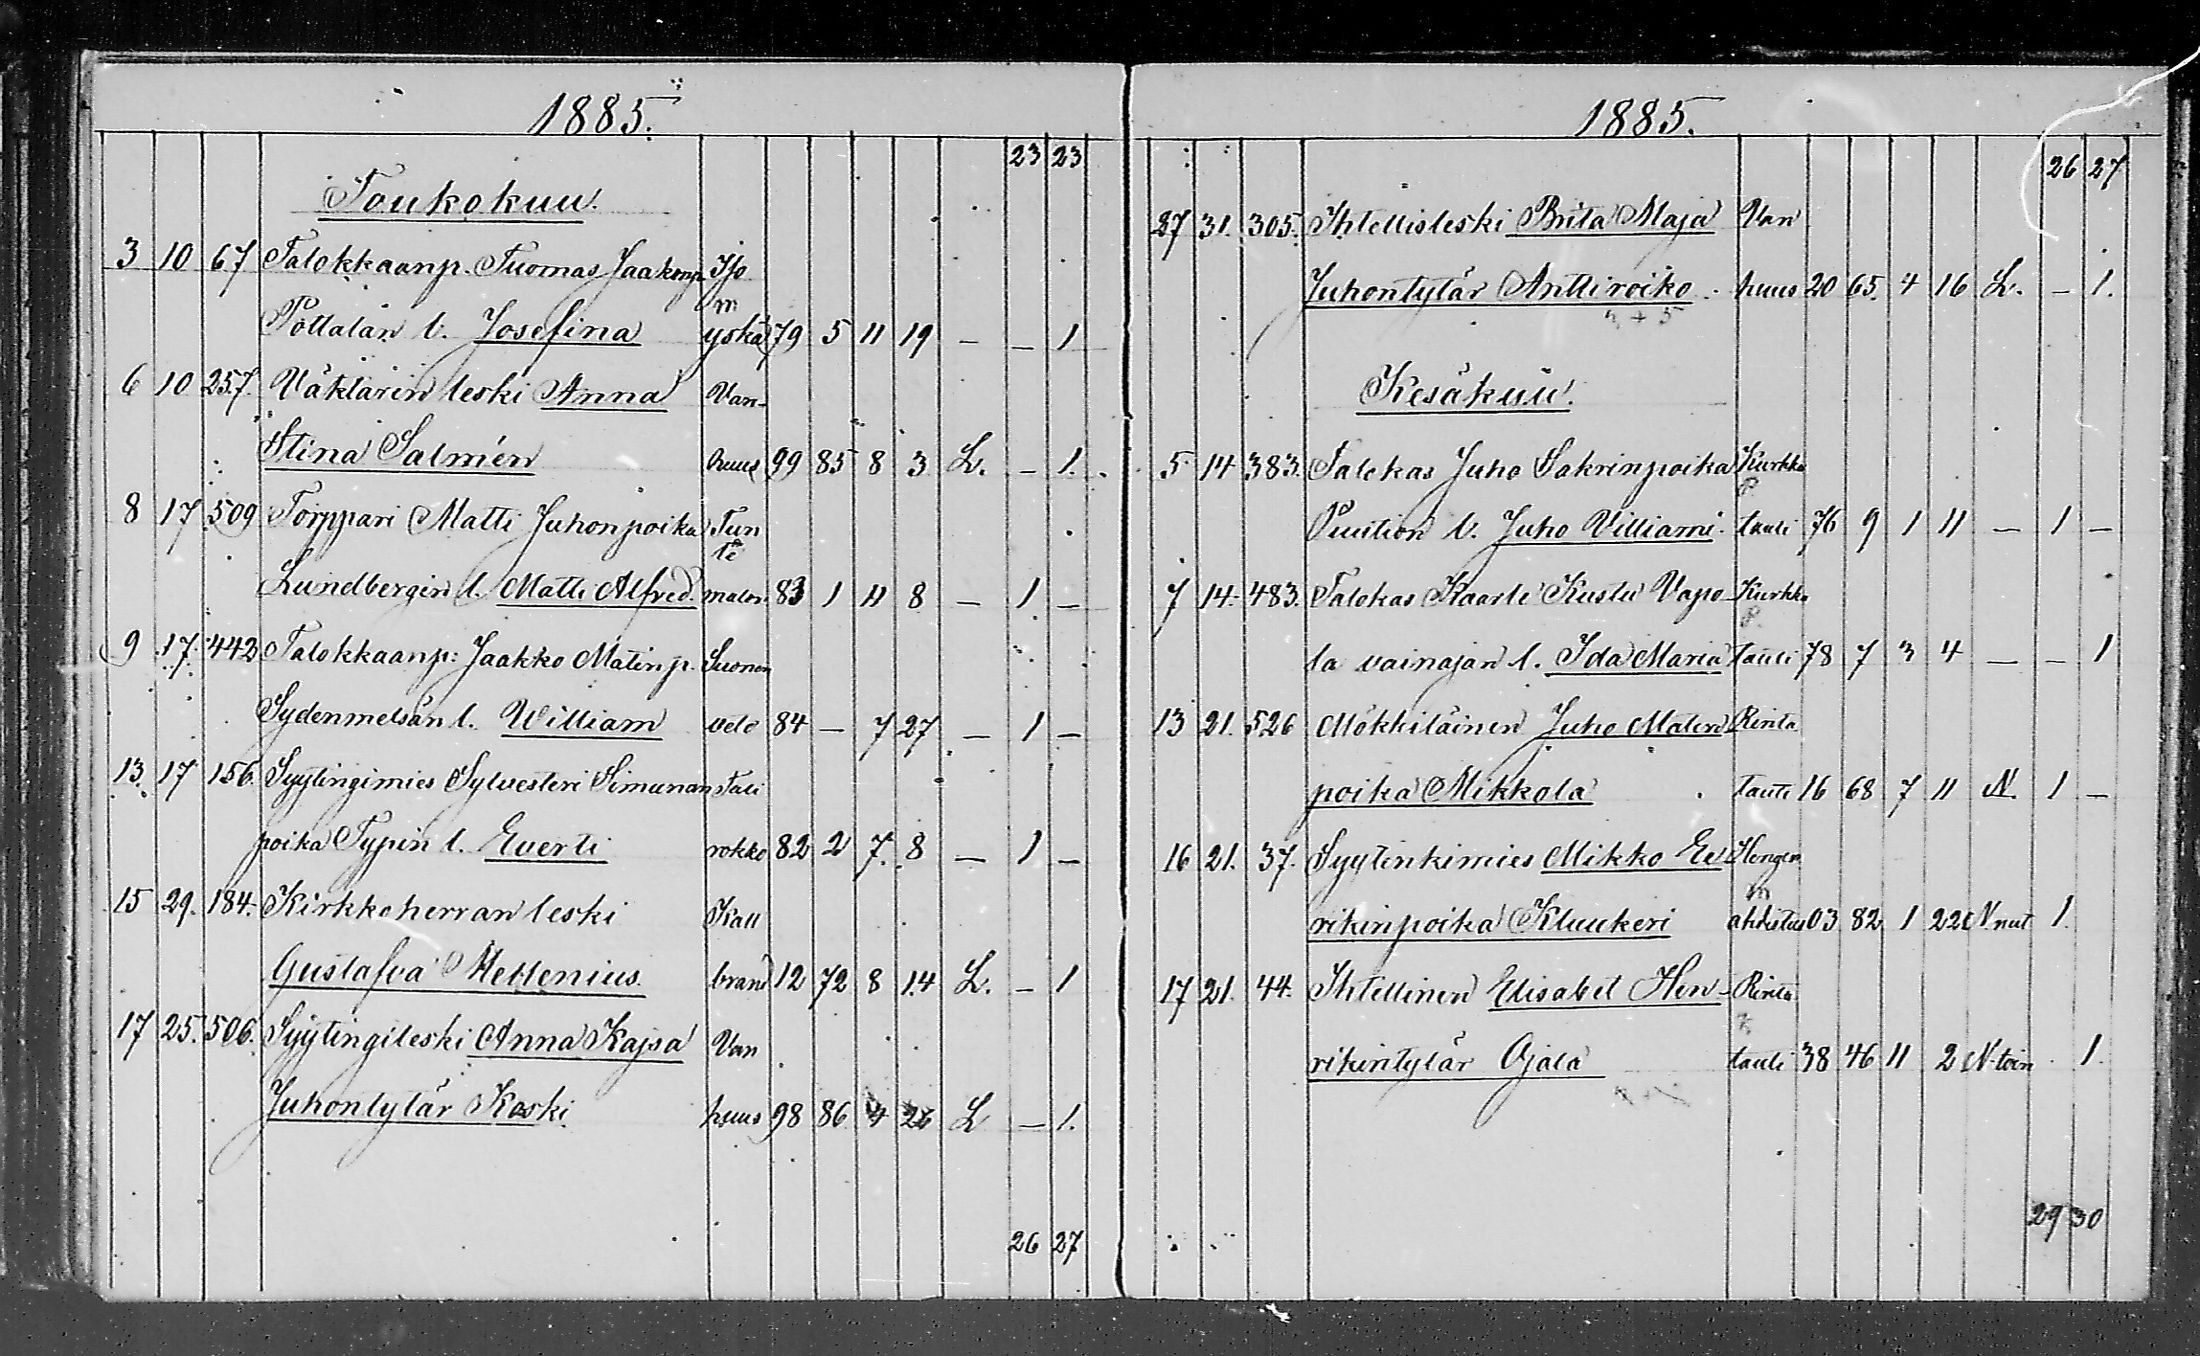 1885.
23 23
Toukokuu.
3 10 67 Talokkaanp. Tuomas Jaakonp Ijo
m
Pottalan l. Josefina yskä 79 5 11 19 — — 1
6 10 257. Väktärin leski Anna Van-
Stina Salmén huus 99 85 8 3 L. — 1.
8 17 509 Torppari Matti Juhonpoika Tun
te
Lundbergin l. Matti Alfred. maton 83 1 11 8 — 1 —
9 17. 442 Talokkaanp: Jaakko Matinp. Suonen
Sydenmetsän l. William veto 84 — 7 27 — 1 —
13. 17 156. Syytingimies Sylvesteri Simunan Tuli
poika Typin l. Everti rokko 82 2 7. 8 — 1 —
15 29. 184. Kirkkoherran leski Kall
Gustafva Mellenius. brand 12 72 8 14 L. — 1
17 25. 506. Syytingileski Anna Kajsa Van
Juhontytär Koski huus 98 86 4 26 L — 1.
26 27
1885.
26 27
27 31. 305. Ihtellisleski Brita Maja Van
Juhontytär Anttiroiko huus 20 65. 4 16 L. — 1.
Kesäkuu.
5 14 383. Talokas Juho Sakrinpoika Kurkku
Puution l. Juho Villiami tauti 76 9 1 11 — 1 —
7 14. 483. Talokas Kaarle Kustu Vapo Kurkku
la vainajan l. Ida Maria tauti 78 7 3 4 — — 1
13 21. 526 Mökkiläinen Juho Matin Rinta
poika Mikkola tauti 16 68 7 11 N. 1 —
16 21. 37. Syytinkimies Mikko Ee Hengen
m
rikinpoika Kluukeri ahdistus 03 82 1 22 N nut 1.
17 21. 44. Ihtellinen Elisabet Hen- Rinta
rikintytär Ojala tauti 38 46 11 2 N-toin 1.
29 30